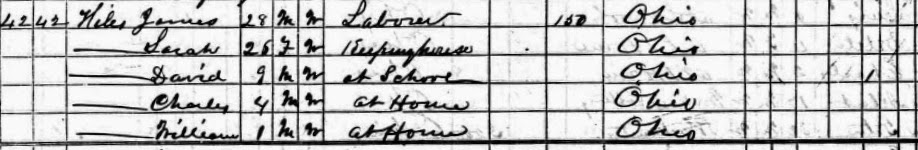 42 42 Niles James 28 M W Laborer 150 Ohio
— Sarah 25 F W Keeping house Ohio
— David 9 M W at School Ohio 1
— Charles 4 M W at Home Ohio
— William 1 M W at Home Ohio